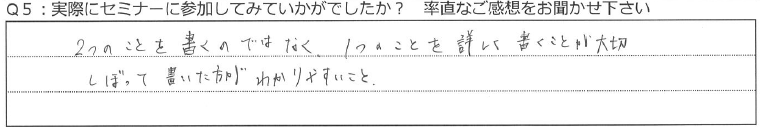 Q5：実際にセミナーに参加してみていかがでしたか？　率直なご感想をお聞かせ下さい
2つのことを書くのではなく、1つのことを詳しく書くことが大切
しぼって書いた方がわかりやすいこと.